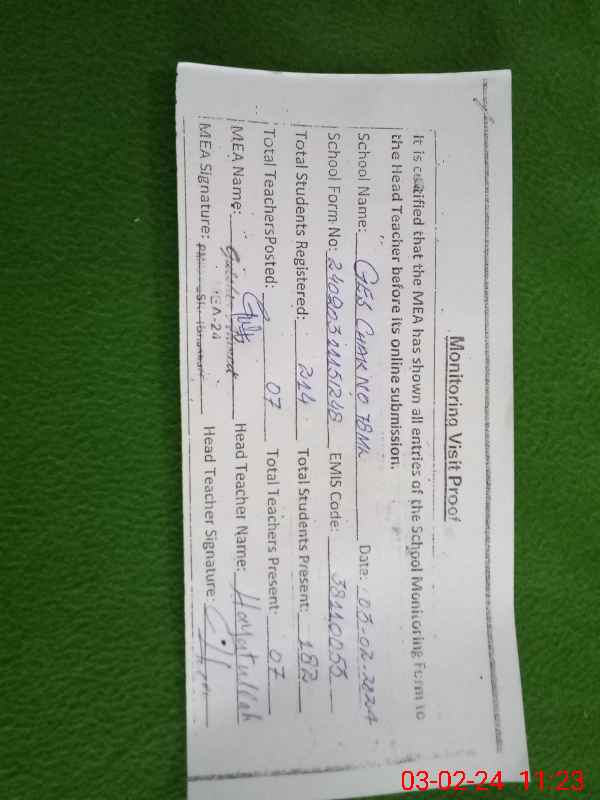 Monitoring Visit Proof
It is certified that the MEA has shown all entries of the School Monitoring Form to
the Head Teacher before its online submission.
School Name: GES CHAK NO 7BML Date: 03-02-2024
School Form No: EMIS Code: 38210055
Total Students Registered: 214 Total Students Present: 182
Total TeachersPosted: 07 Total Teachers Present: 07
MEA Name: Head Teacher Name: Hayatullah
MEA Signature: MEA-24 Head Teacher Signature:
03-02-24 11:23